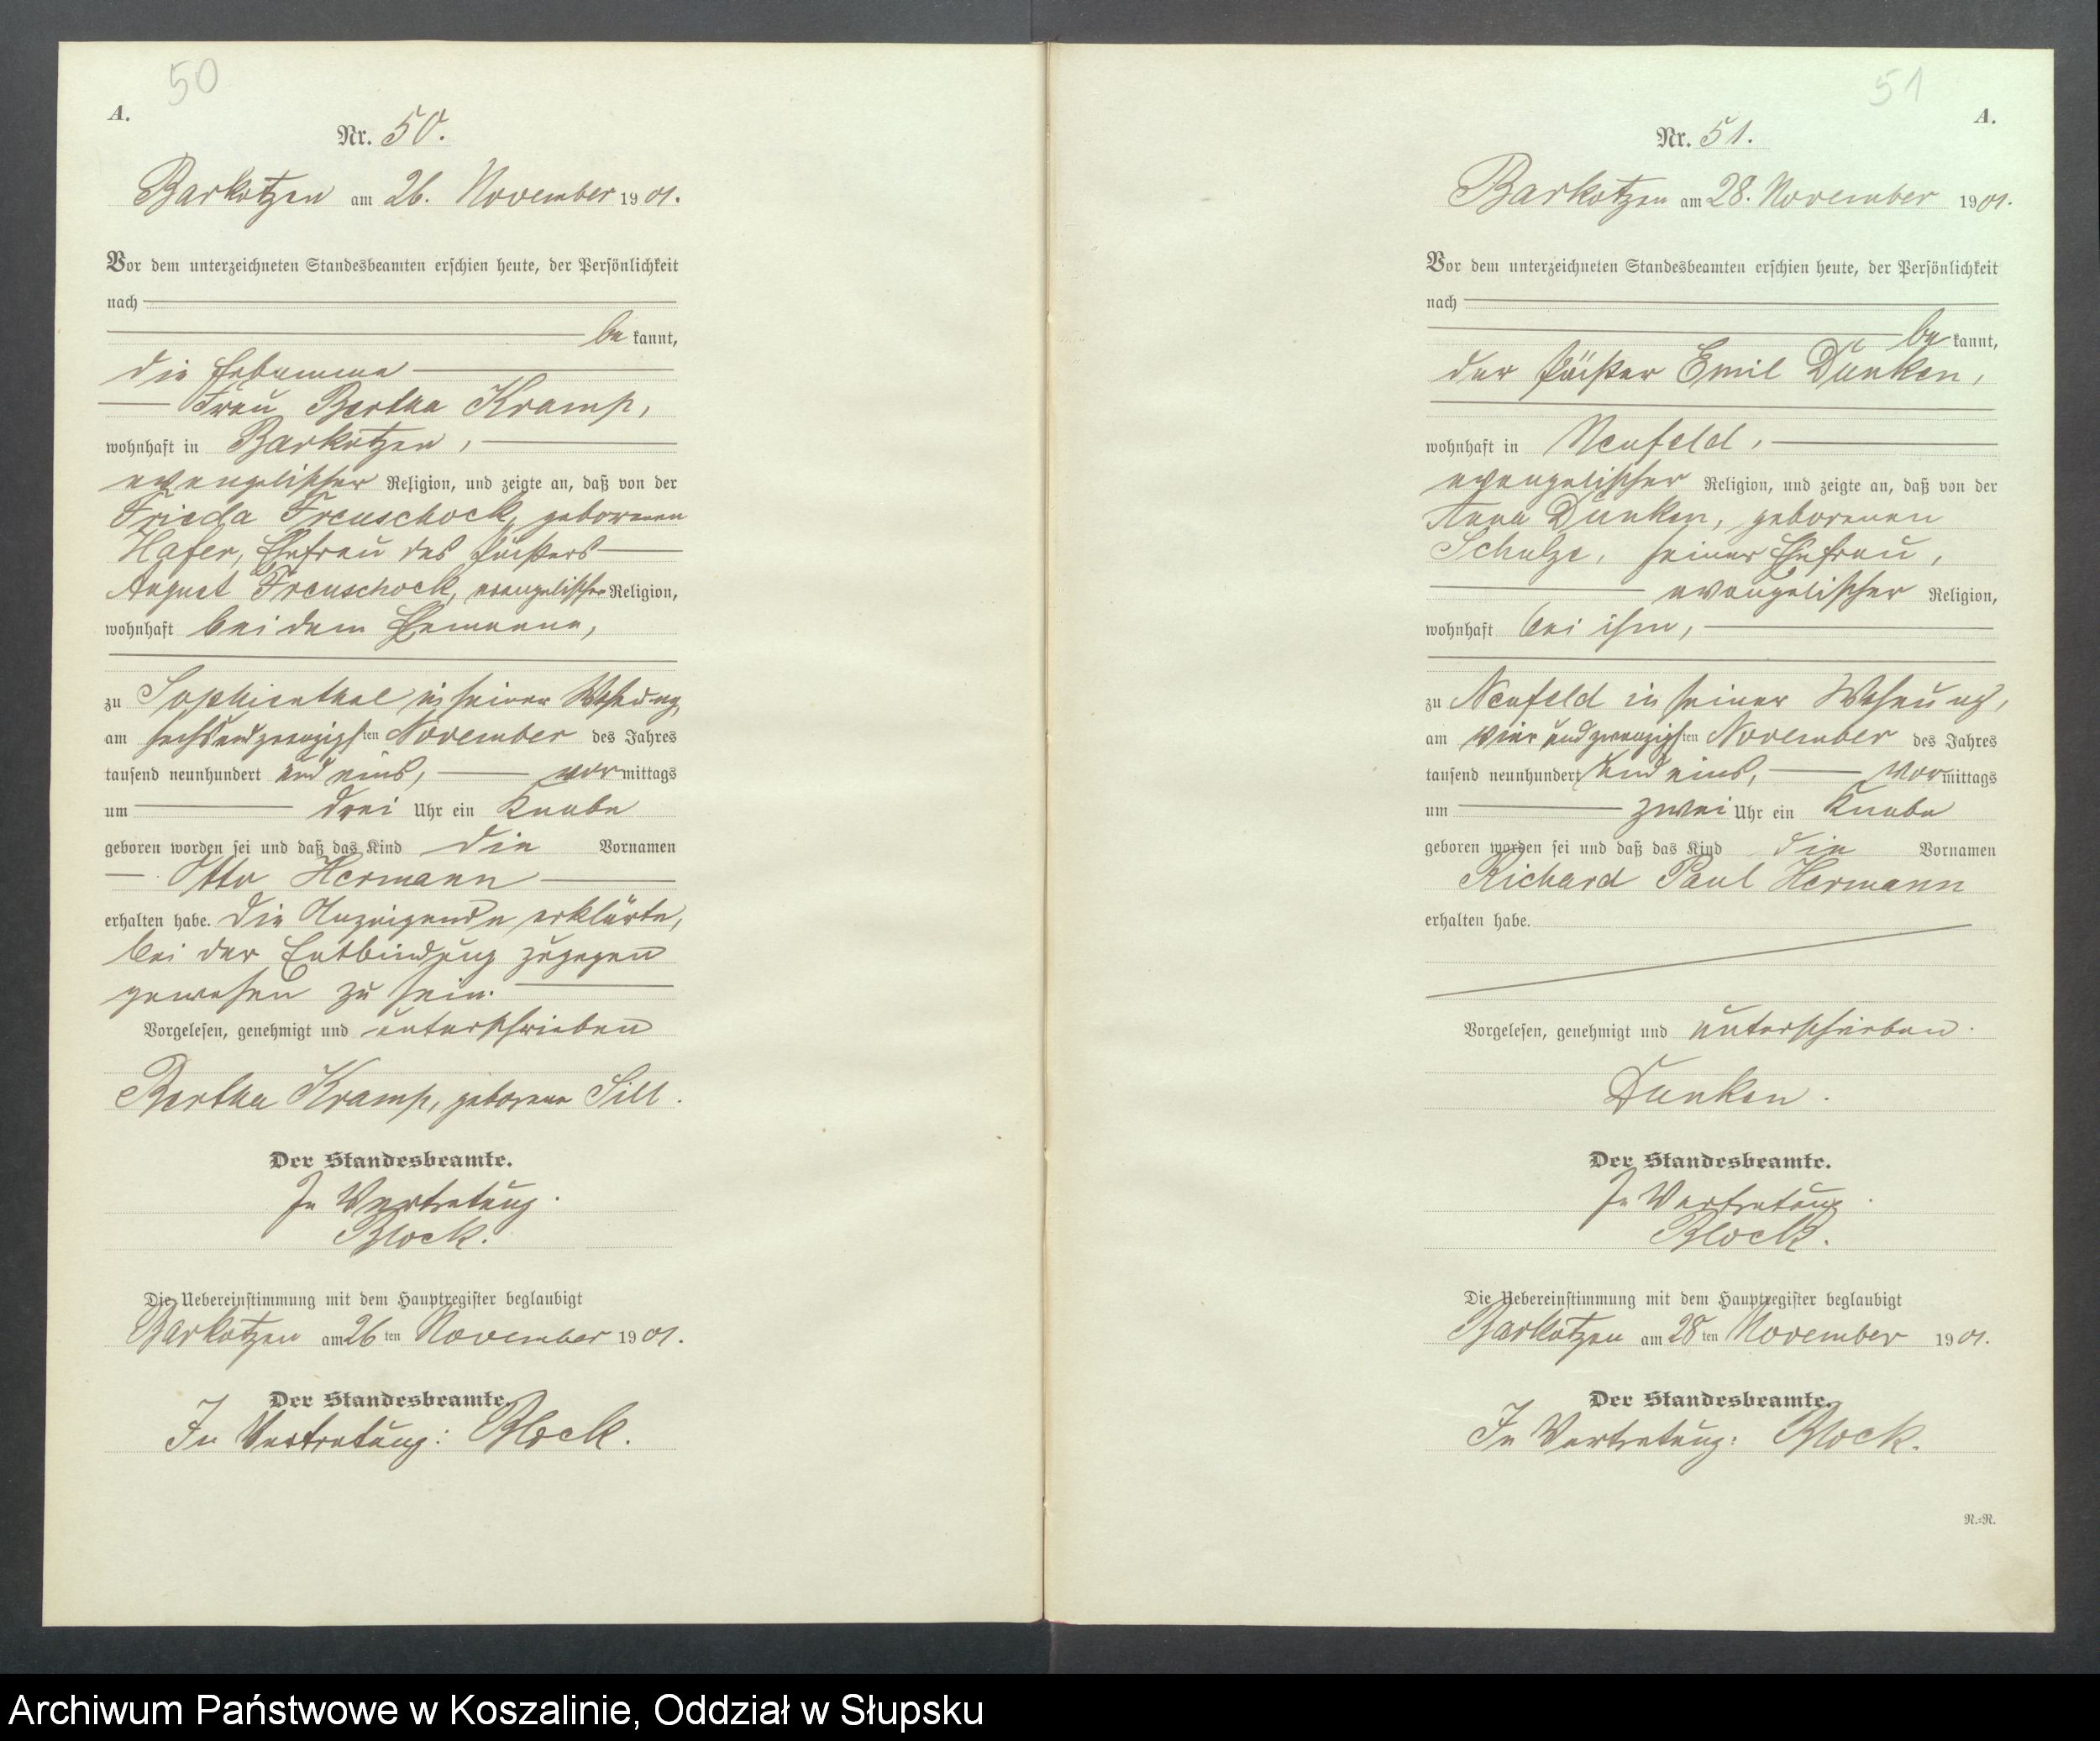 50
A.
Nr. 50.
Barkotzen am 26. November 1901.
Vor dem unterzeichneten Standesbeamten erschien heute, der Persönlichkeit
nach
be kannt,
die Hebamme
Frau Bertha Kramp,
wohnhaft in Barkotzen,
evangelischer Religion, und zeigte an, daß von der
Frieda Treuschock, geborenen
Hafer, Ehefrau des Pächters
August Treuschock, evangelischer Religion,
wohnhaft bei dem Ehemanne,
zu Sophienthal in seiner Wohnung,
am sechsundzwanzigsten November des Jahres
tausend neunhundert und eins, vormittags
um drei Uhr ein Knabe
geboren worden sei und daß das Kind die Vornamen
Otto Hermann
erhalten habe. Die Anzeigende erklärte,
bei der Entbindung zugegen
gewesen zu sein.
Vorgelesen, genehmigt und unterschrieben
Bertha Kramp, geborene Sill.
Der Standesbeamte.
In Vertretung.
Block.
Die Uebereinstimmung mit dem Hauptregister beglaubigt
Barkotzen am 26ten November 1901.
Der Standesbeamte.
In Vertretung: Block.
51
A.
Nr. 51.
Barkotzen am 28. November 1901.
Vor dem unterzeichneten Standesbeamten erschien heute, der Persönlichkeit
nach
be kannt,
der Pächter Emil Dunken,
wohnhaft in Neufeld,
evangelischer Religion, und zeigte an, daß von der
Anna Dunken, geborenen
Schulze, seiner Ehefrau,
evangelischer Religion,
wohnhaft bei ihm,
zu Neufeld in seiner Wohnung,
am vier und zwanzigsten November des Jahres
tausend neunhundert und eins, vormittags
um zwei Uhr ein Knabe
geboren worden sei und daß das Kind die Vornamen
Richard Paul Hermann
erhalten habe.
Vorgelesen, genehmigt und unterschrieben.
Dunken.
Der Standesbeamte.
In Vertretung.
Block.
Die Uebereinstimmung mit dem Hauptregister beglaubigt
Barkotzen am 28ten November 1901.
Der Standesbeamte.
In Vertretung: Block.
N.=R.
Archiwum Państwowe w Koszalinie, Oddział w Słupsku